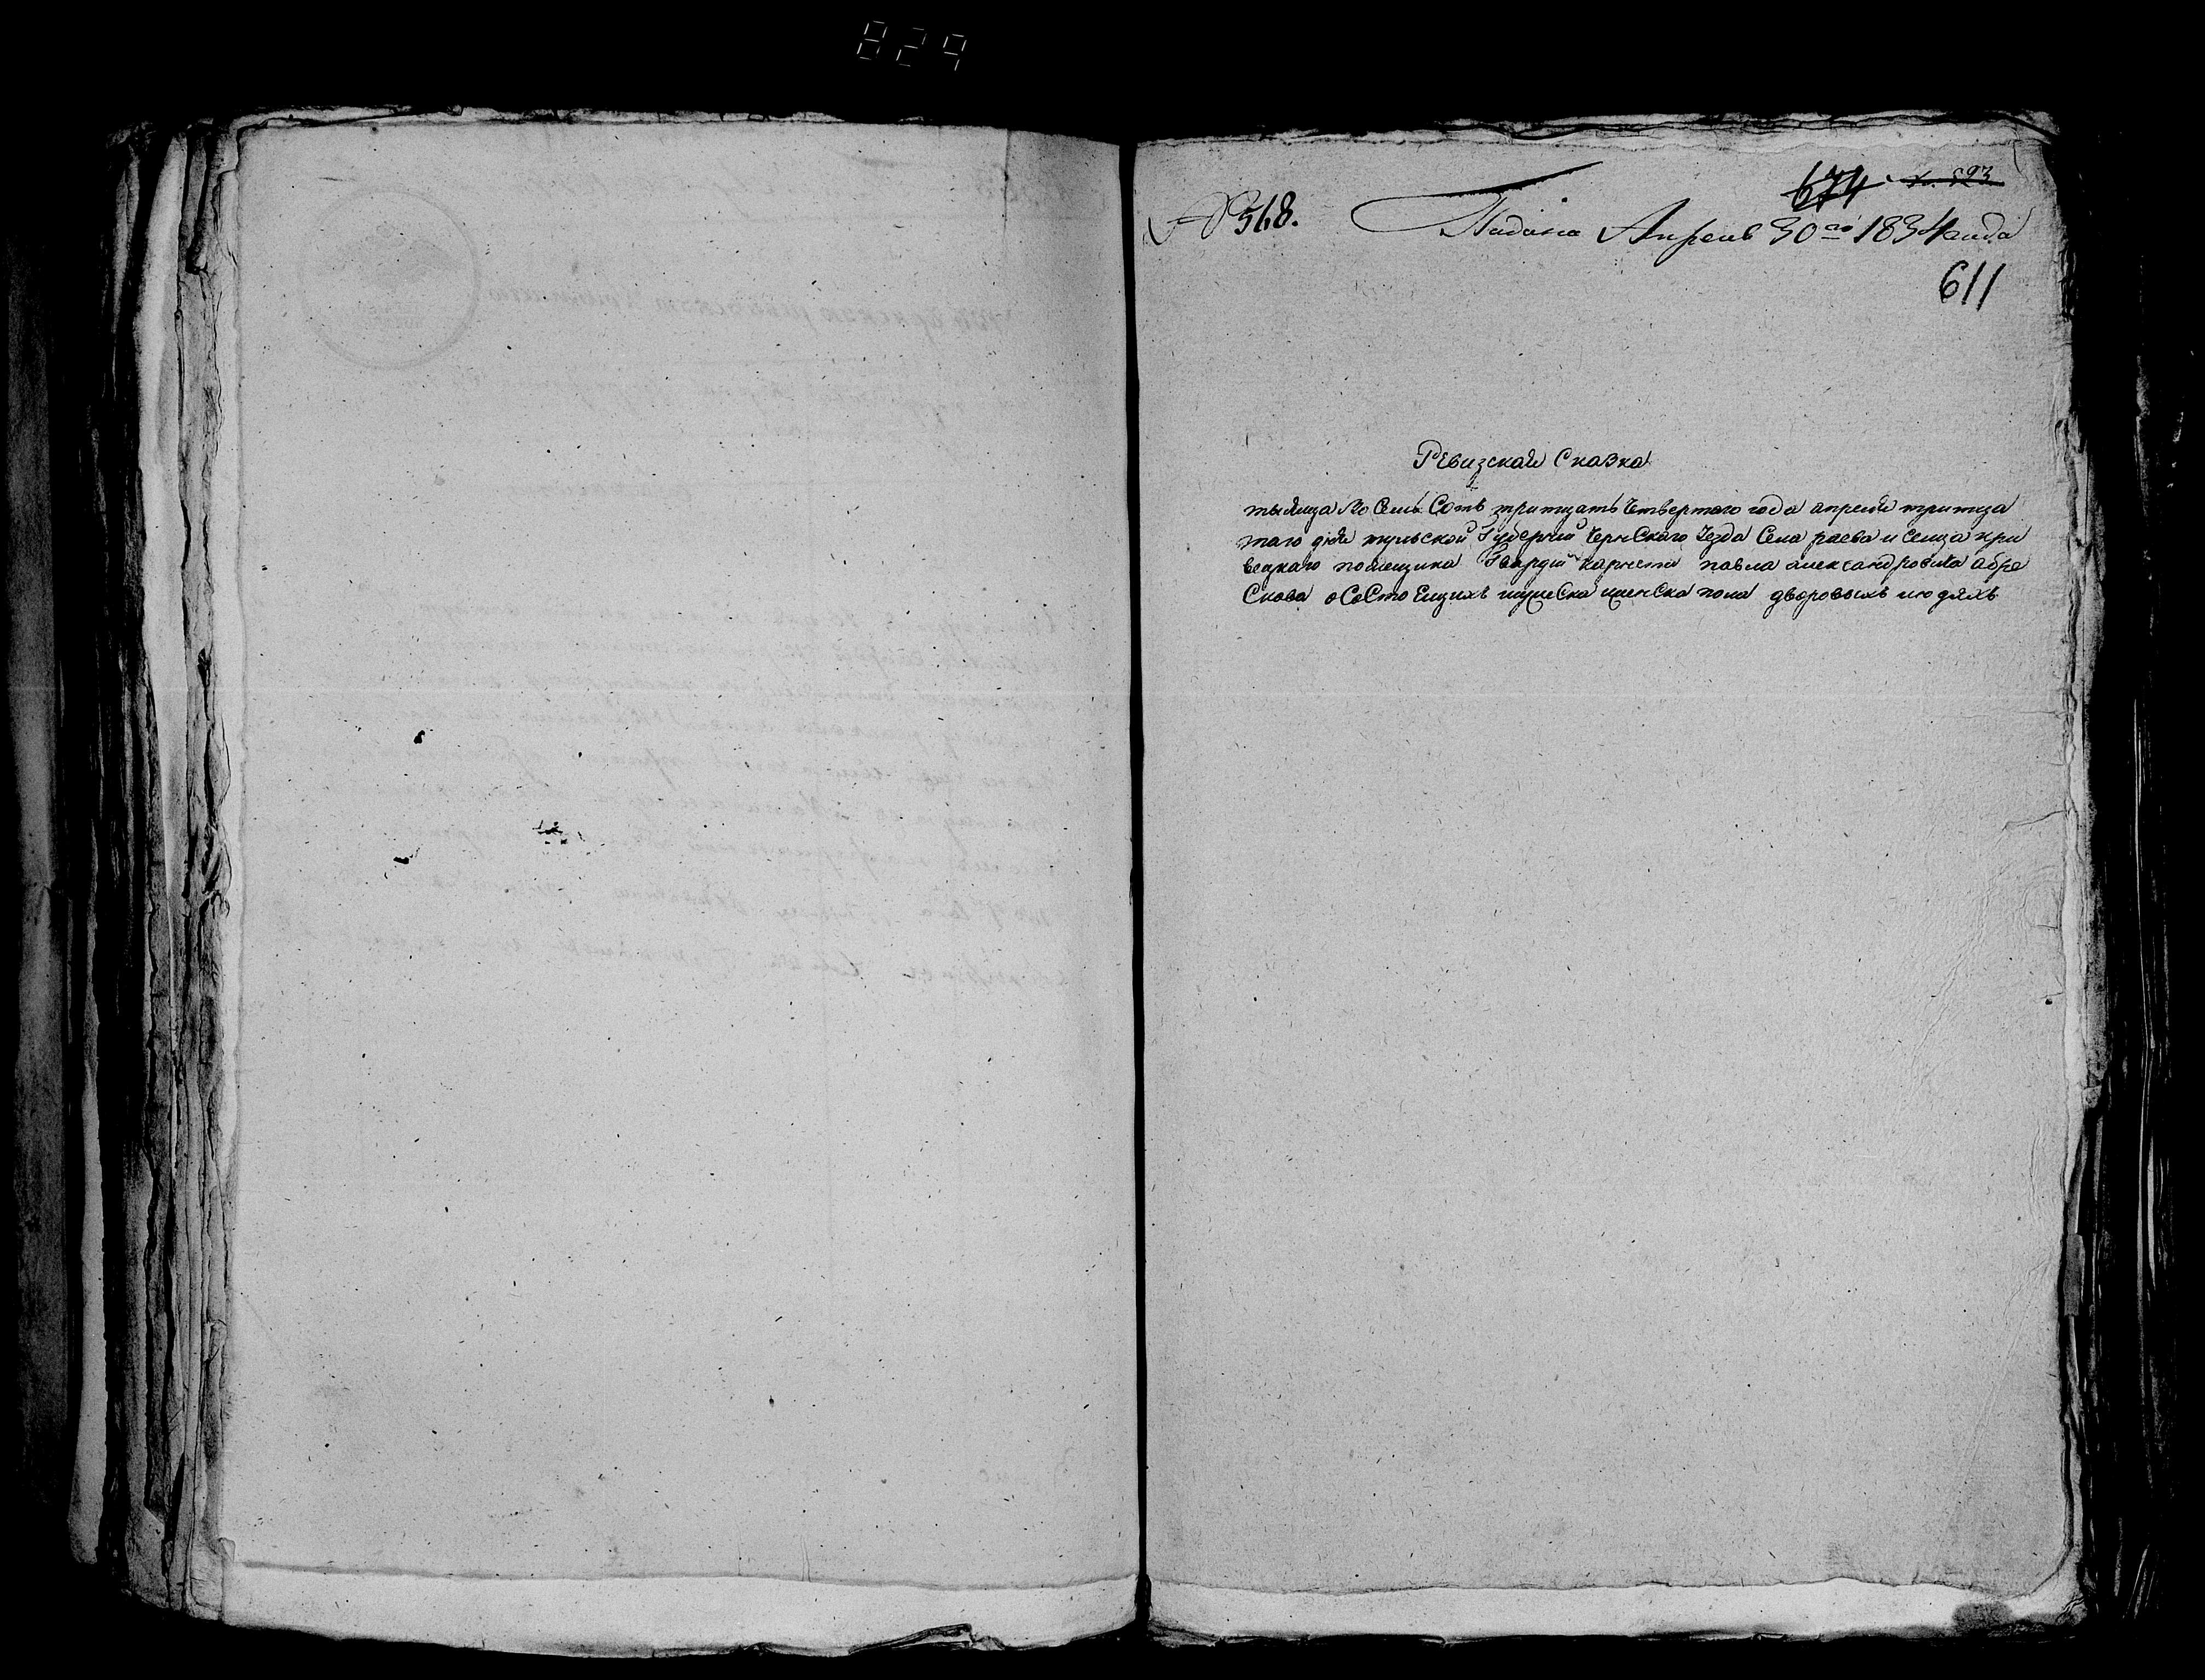 829
674
№ 568. Подана Апреля 30го 1834 года
611
Ревизская Сказка
тысяща Во Семь Сотъ тритцать Четвертаго года апреля тритца
таго дня тульской Губернии Черньскаго Уезда Села раева и Селца кри
вецкаго помещика Гвардии Павла александровича абре
Скова оСоСтоЕщихъ мужеска женска пола дворовыхъ людяхъ